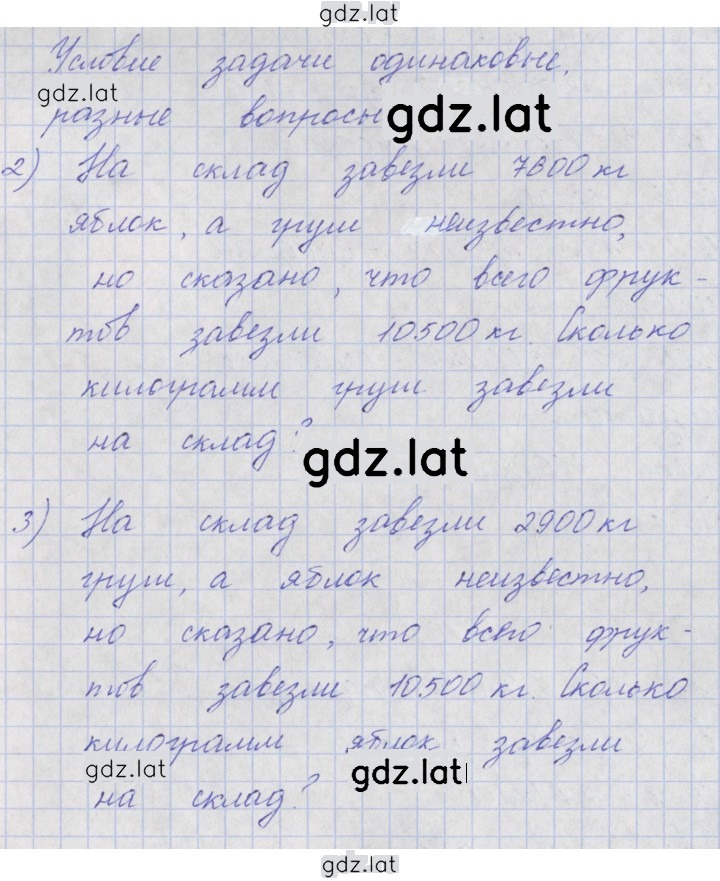 gdz.lat
Условие задачи одинаковые,
gdz.lat
разные вопросы
gdz.lat
2) На склад завезли 7600 кг
яблок, а груш неизвестно,
но сказано, что всего фрук-
тов завезли 10500 кг. Сколько
килограмм груш завезли
на склад?
gdz.lat
3) На склад завезли 2900 кг
груш, а яблок неизвестно,
но сказано, что всего фрук-
тов завезли 10500 кг. Сколько
килограмм яблок завезли
gdz.lat
gdz.lat
на склад?
gdz.lat